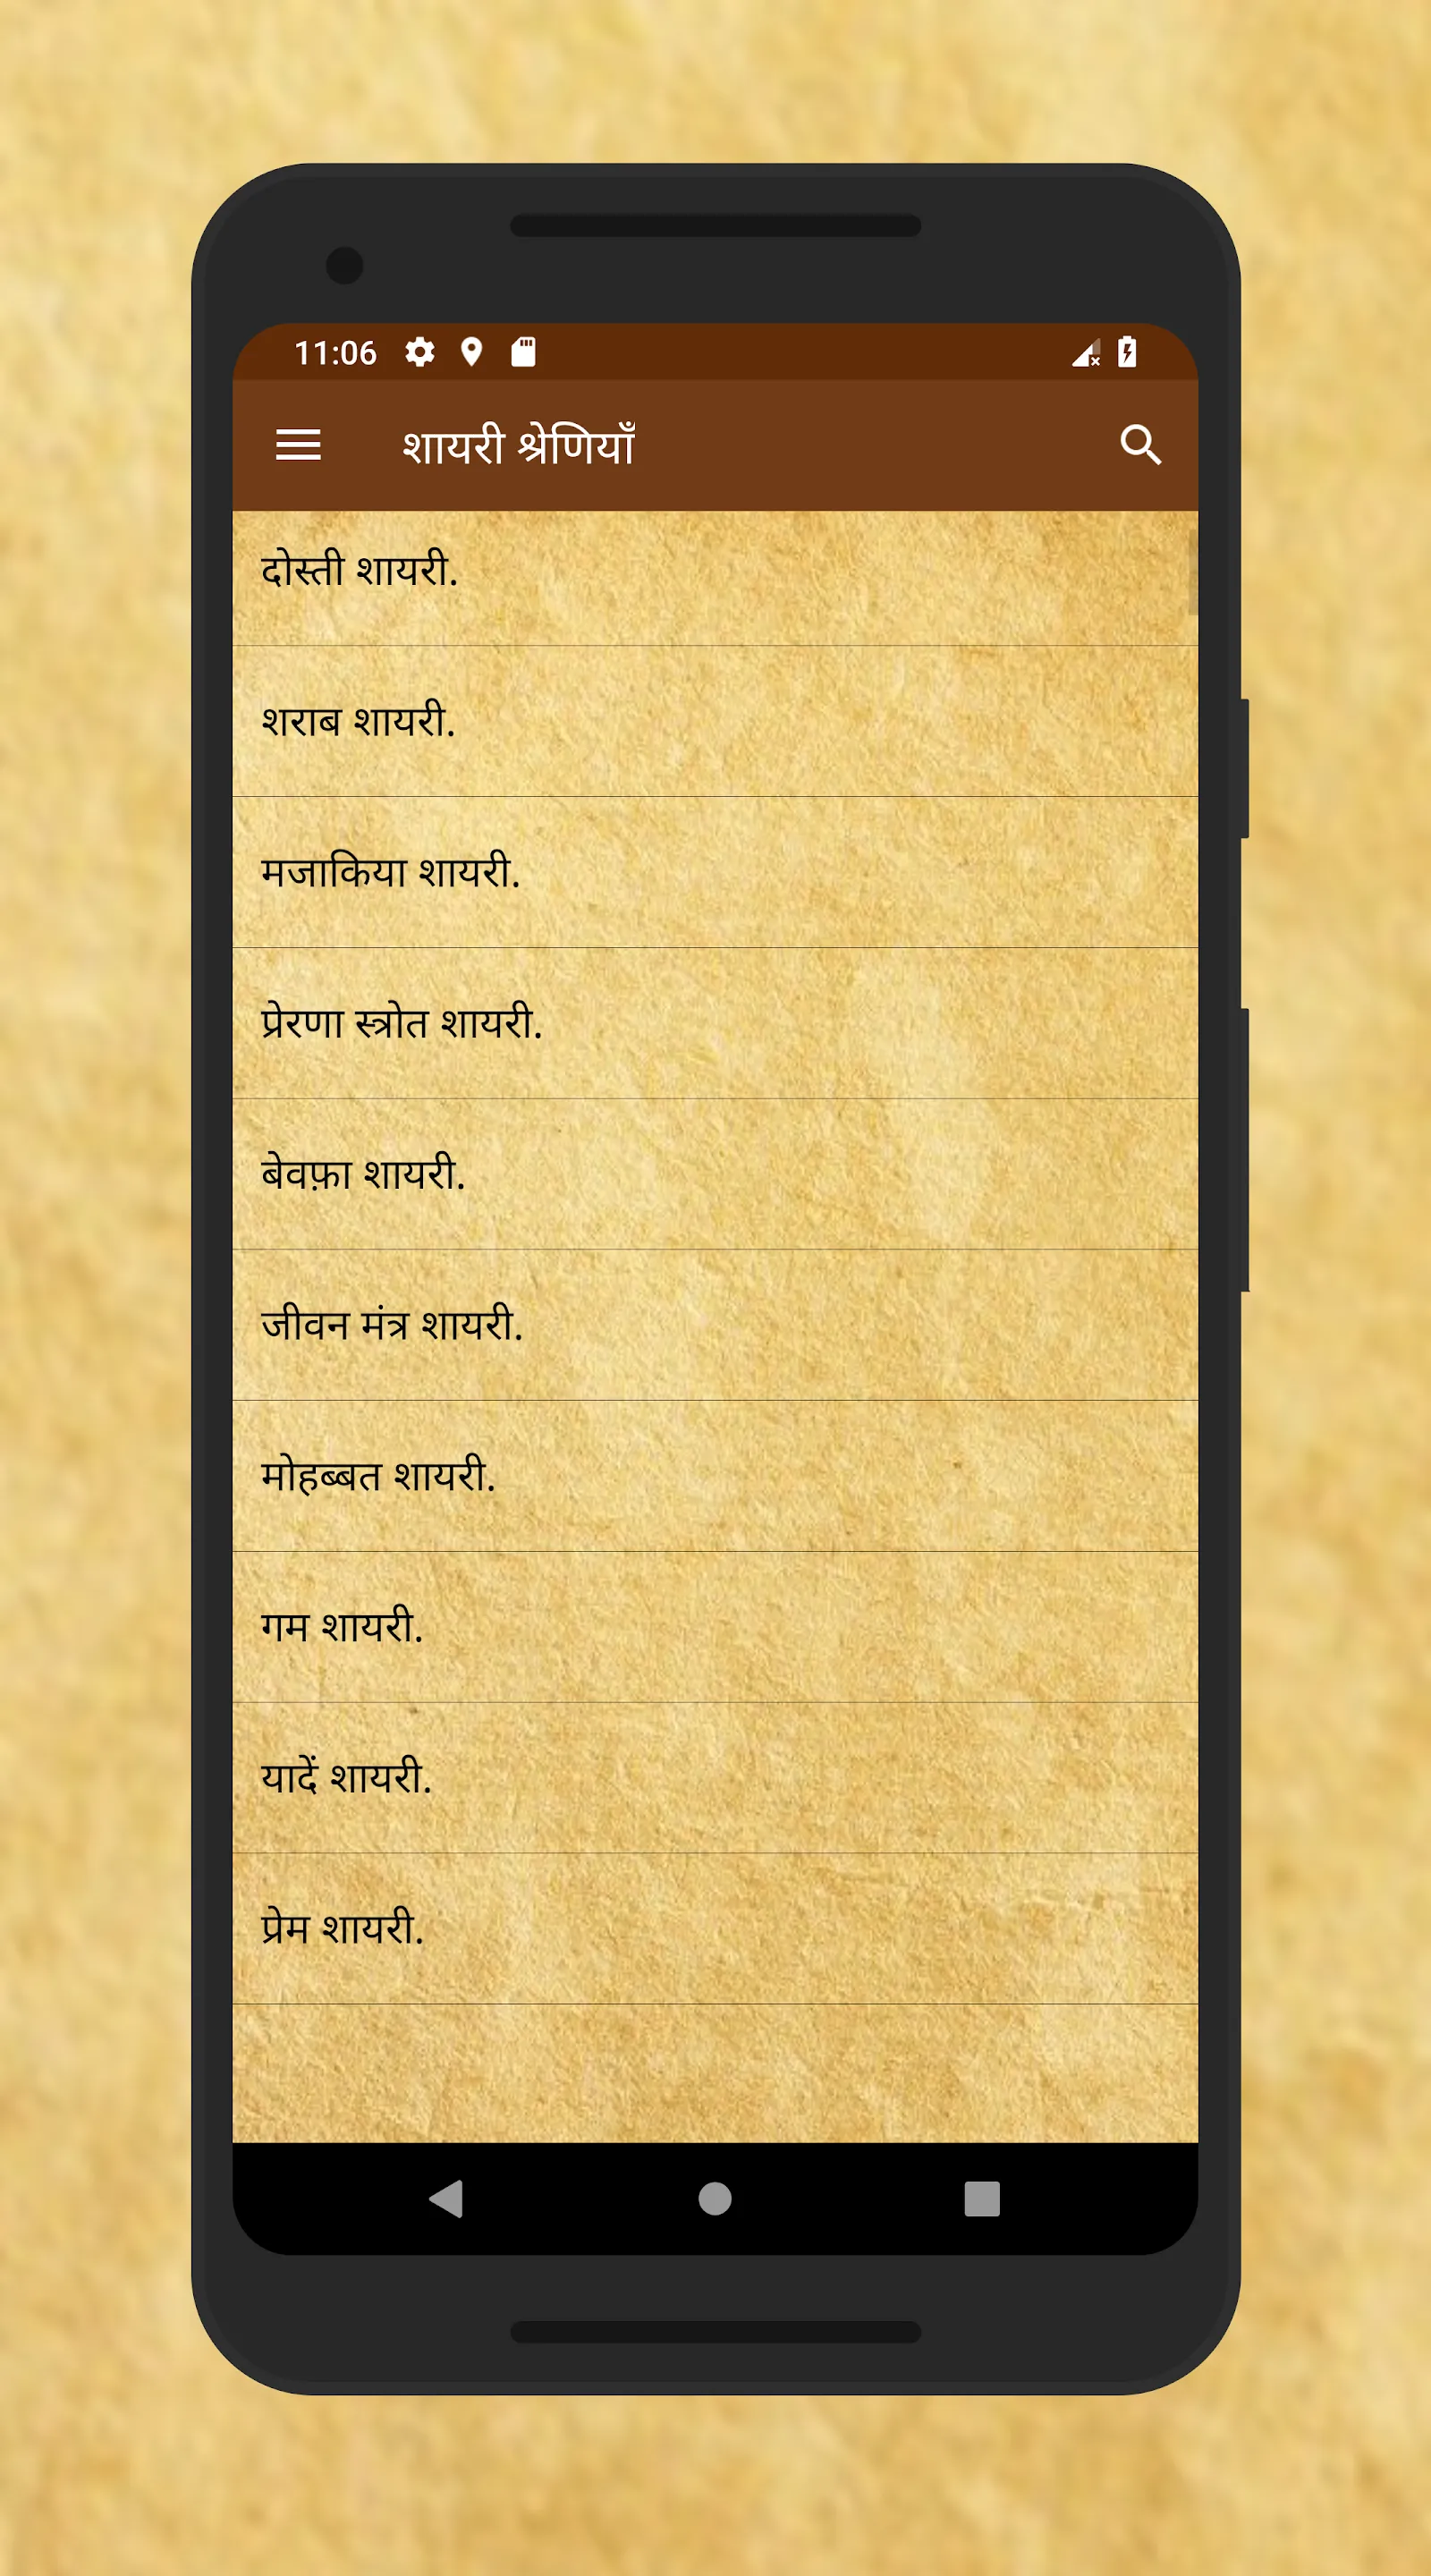 11:06
शायरी श्रेणियाँ
दोस्ती शायरी.
शराब शायरी.
मजाकिया शायरी.
प्रेरणा स्त्रोत शायरी.
बेवफ़ा शायरी.
जीवन मंत्र शायरी.
मोहब्बत शायरी.
गम शायरी.
यादें शायरी.
प्रेम शायरी.